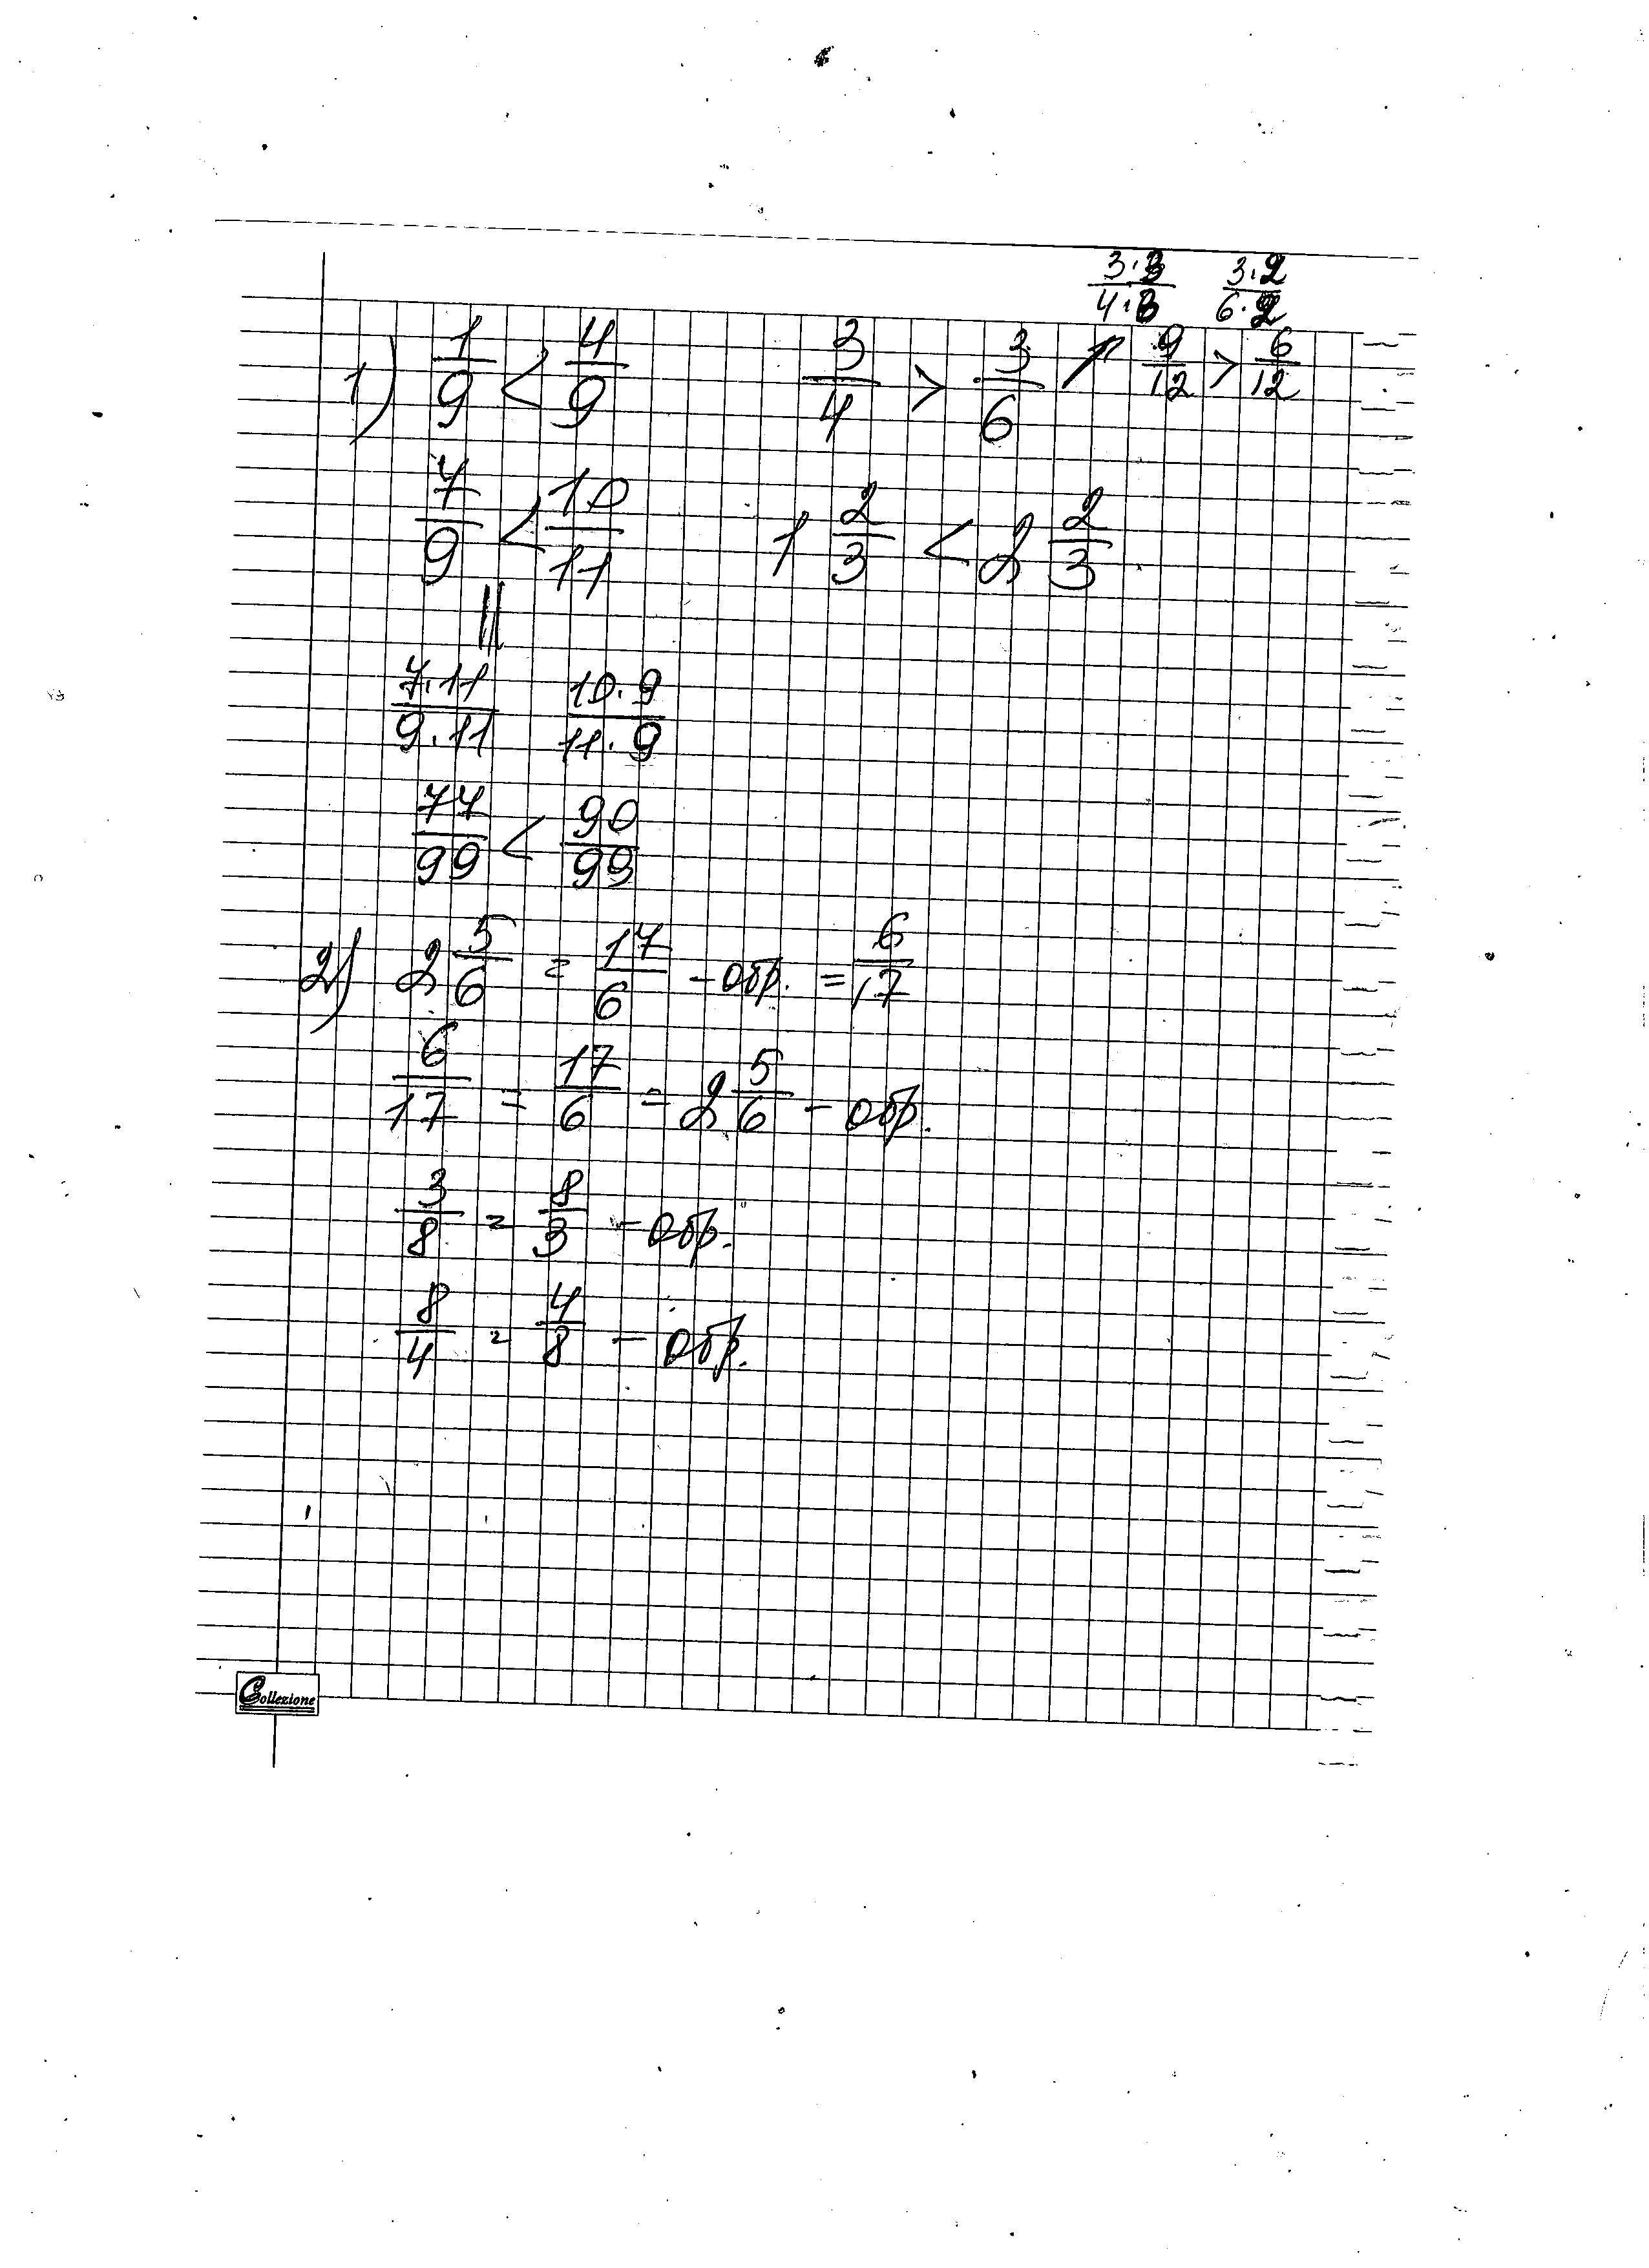 3·3/4·3 3·2/6·2
1) 1/9 < 4/9 3/4 > 3/6 ↗ 9/12 > 6/12
7/9 < 10/11 1 2/3 < 2 2/3
||
7·11/9·11 10·9/11·9
77/99 < 90/99
2) 2 5/6 = 17/6 – обр. = 6/17
6/17 = 17/6 = 2 5/6 – обр.
3/8 = 8/3 – обр.
8/4 = 4/8 – обр.
Collezione